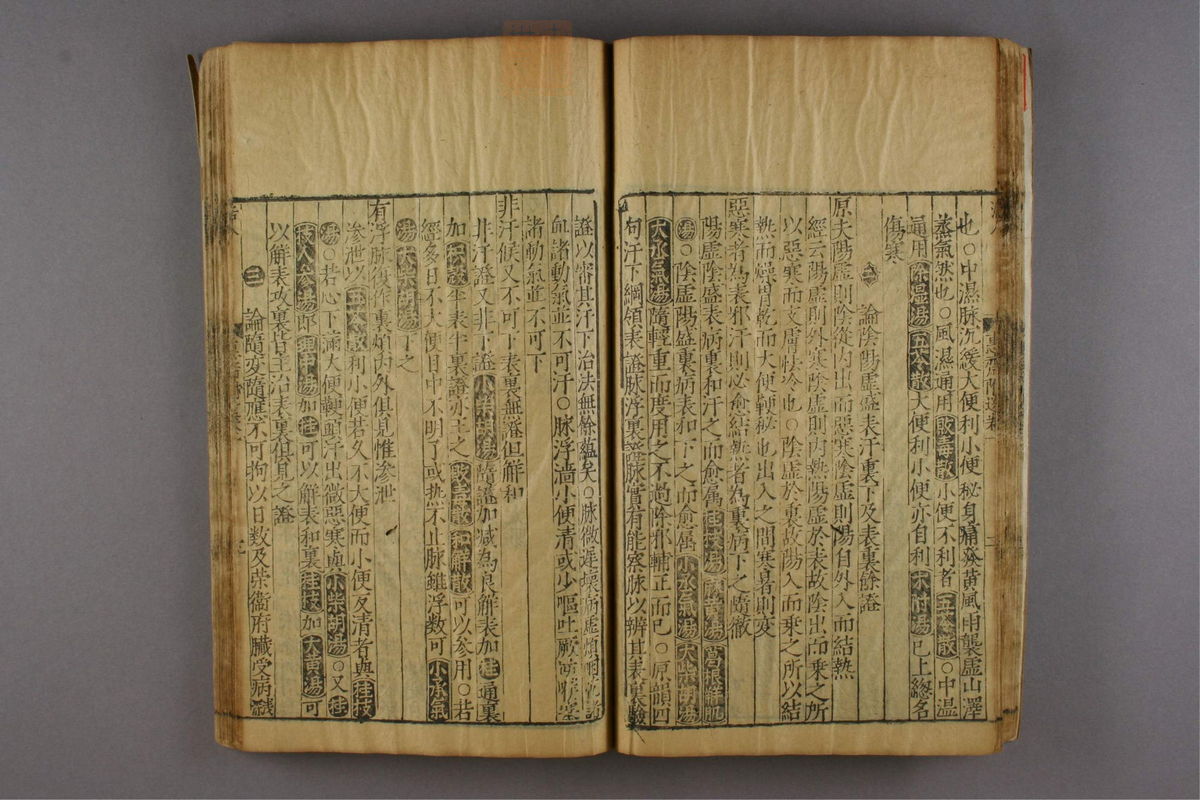 也○中濕脉沉緩大便利小便秘身痛發黄風雨襲虚山澤
蒸氣然也○風濕通用敗毒散小便不利者五苓散○中温
通用除湿湯五苓散大便利小便亦自利术附湯已上緫名
傷寒
二 論陰陽虚盛表汗裏下及表裏餘證
原夫陽虚則陰從内出而惡寒陰虚則陽自外入而結熱
經云陽虚則外寒陰虚則内熱陽虚於表故陰出而乗之所
以惡寒而支膚怯冷也○陰虚於裏故陽入而乗之所以結
熱而燥胃乾而大便鞕秘也出入之間寒暑則变
惡寒者為表邪汗則必愈結熱者為裏病下之隨徹
陽虚陰盛表病裏和汗之而愈属桂枝湯麻黄湯葛根觧肌
湯○陰虚陽盛裏病表和下之而愈属小承氣湯大柴胡湯
大承氣湯隨輕重而度用之不過除邪輔正而已○原韻四
句汗下綱領表證脉浮裏證脉實有能察脉以辨其表裏驗
證以審其汗下治法無餘蘊矣○脉微遲壞病虚煩咽乾諸
血諸動氣並不可汗○脉浮濇小便清或少嘔吐厥
諸動氣並不可下
非汗候又不可下表裏無證但觧和
非汗證又非下證小柴胡湯隨證加减為良觧表加桂通裏
加枳殻半表半裏證亦主之敗毒散和觧散可以参用○若
經多日不大便日中不明了或热不止脉雖浮数可小承氣
湯大柴胡湯下之
有浮脉復作裏煩内外俱見惟滲泄
滲泄以五苓散利小便若久不大便而小便反清者與桂枝
湯○若心下痛大便鞕觧汗出微惡寒與小柴胡湯○又桂
枝人參湯即理中湯加桂可以觧表和裏桂枝加大黄湯可
以觧表攻裏皆主治表裏俱見之證
三 論隨变隨應不可拘以日数及荣衞府臟受病淺